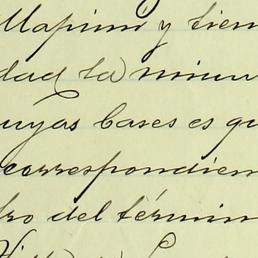 Mapimi y tien
dad la minu
uyas bases es qu
correspondien
ro del términ